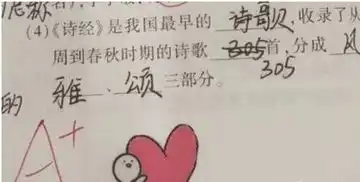 (4)《诗经》是我国最早的 诗歌,收录了从
周到春秋时期的诗歌 305 首,分成 风
305
的 雅 、 颂 三部分。
A+